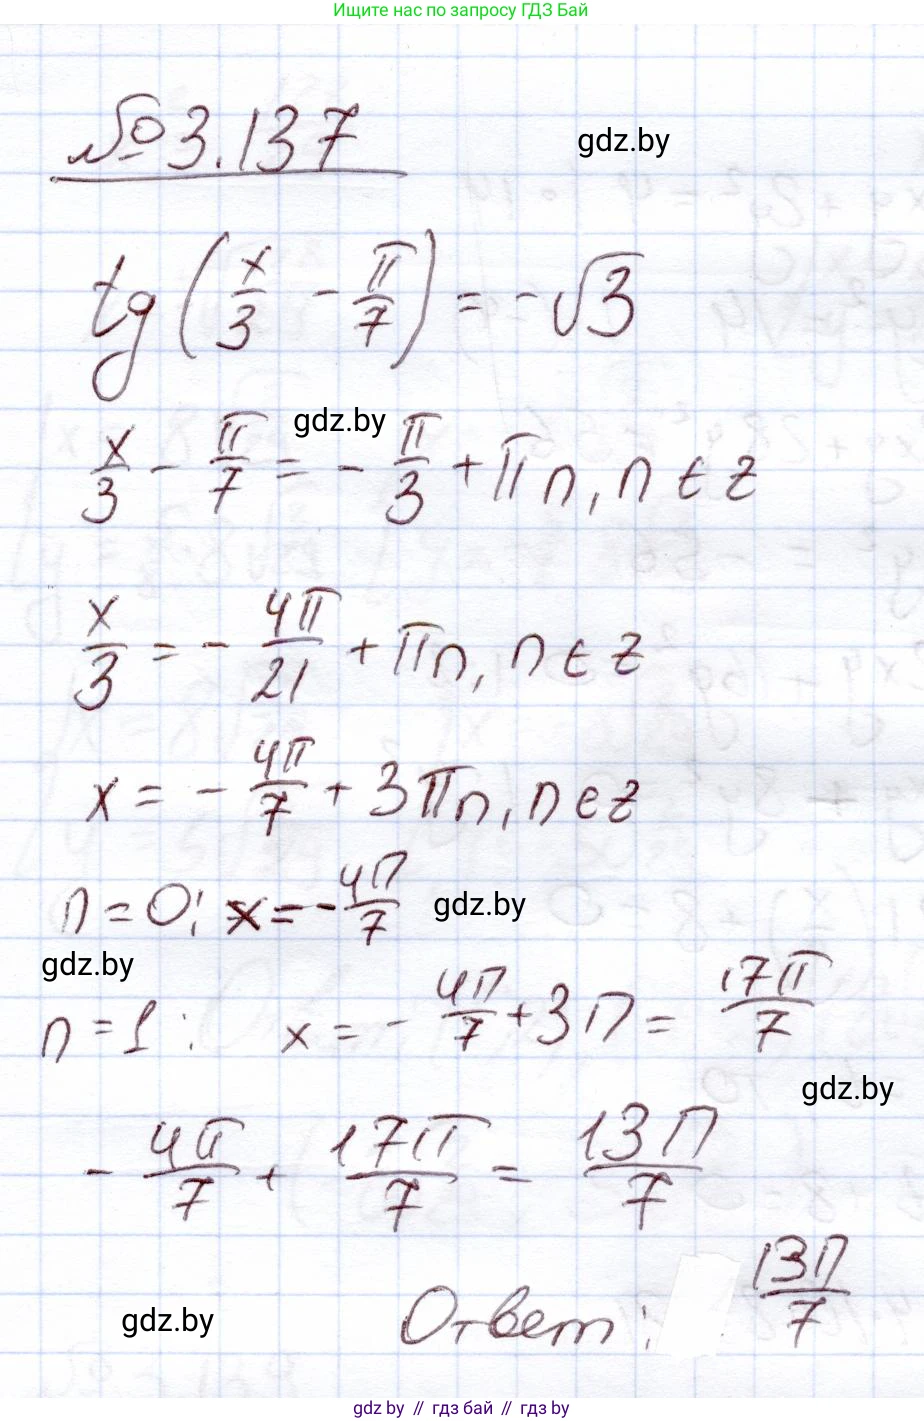 Ищите нас по запросу ГДЗ Бай
№ 3.137
gdz.by
tg(x/3 - π/7) = -√3
gdz.by
x/3 - π/7 = - π/3 + πn, n ∈ z
x/3 = - 4π/21 + πn, n ∈ z
x = - 4π/7 + 3πn, n ∈ z
n = 0; x = - 4π/7
gdz.by
gdz.by
n = 1: x = - 4π/7 + 3π = 17π/7
gdz.by
- 4π/7 + 17π/7 = 13π/7
gdz.by
Ответ: 13π/7
gdz.by // гдз бай // гдз by